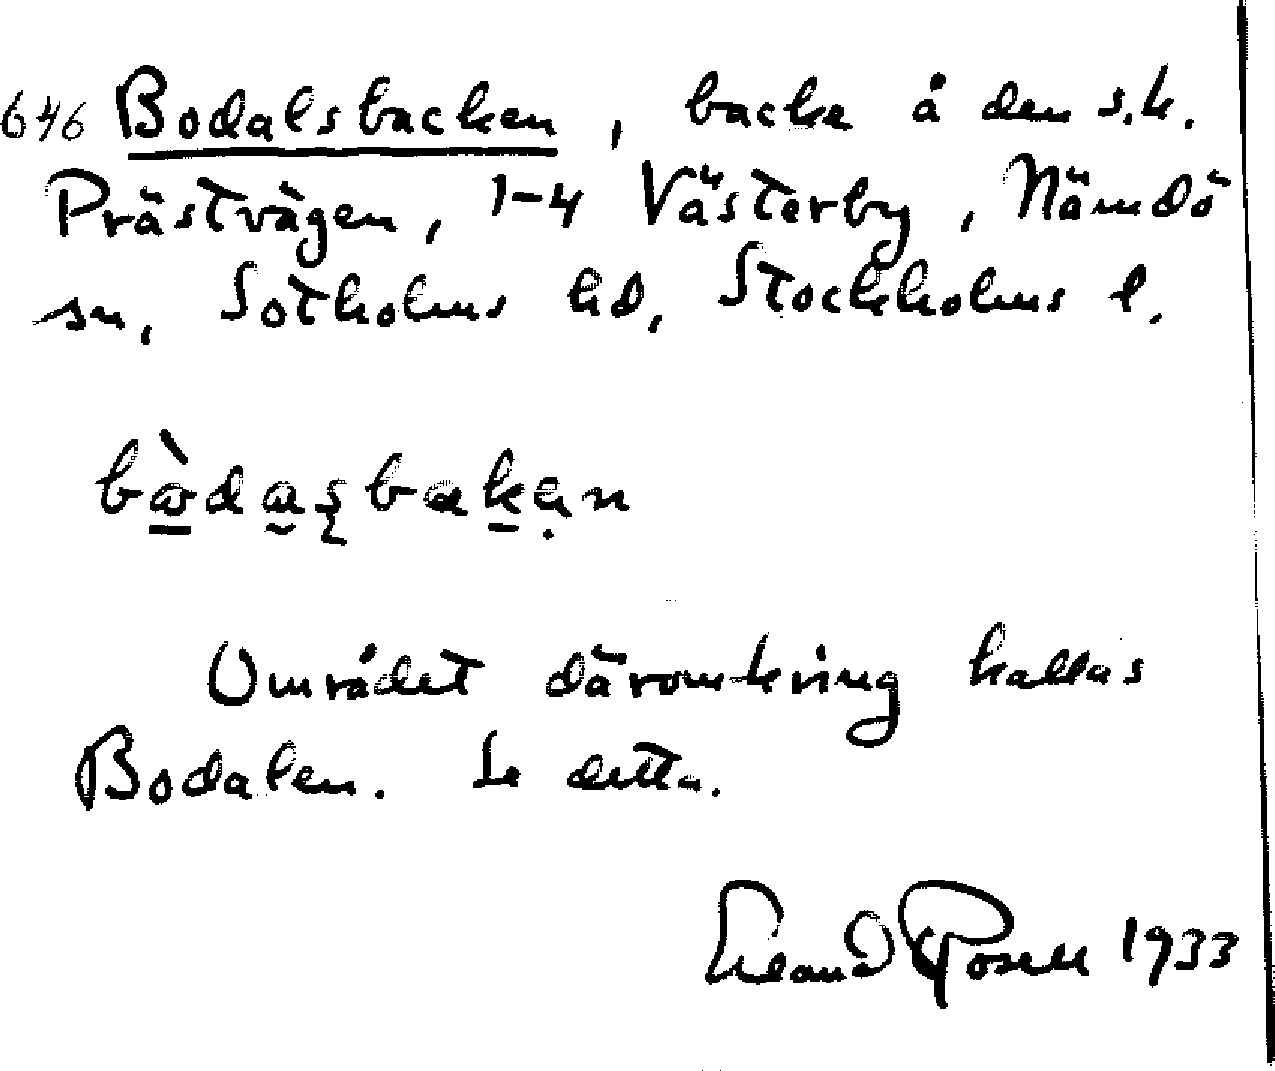 646 Bodalsbacken, backe å den s.k.
Prästvägen, 1-4 Västerby, Nämdö
sn, Sotholms hd, Stockholms l.
Området däromkring kallas
Bodalen. Se detta.
Erland Rosell 1933